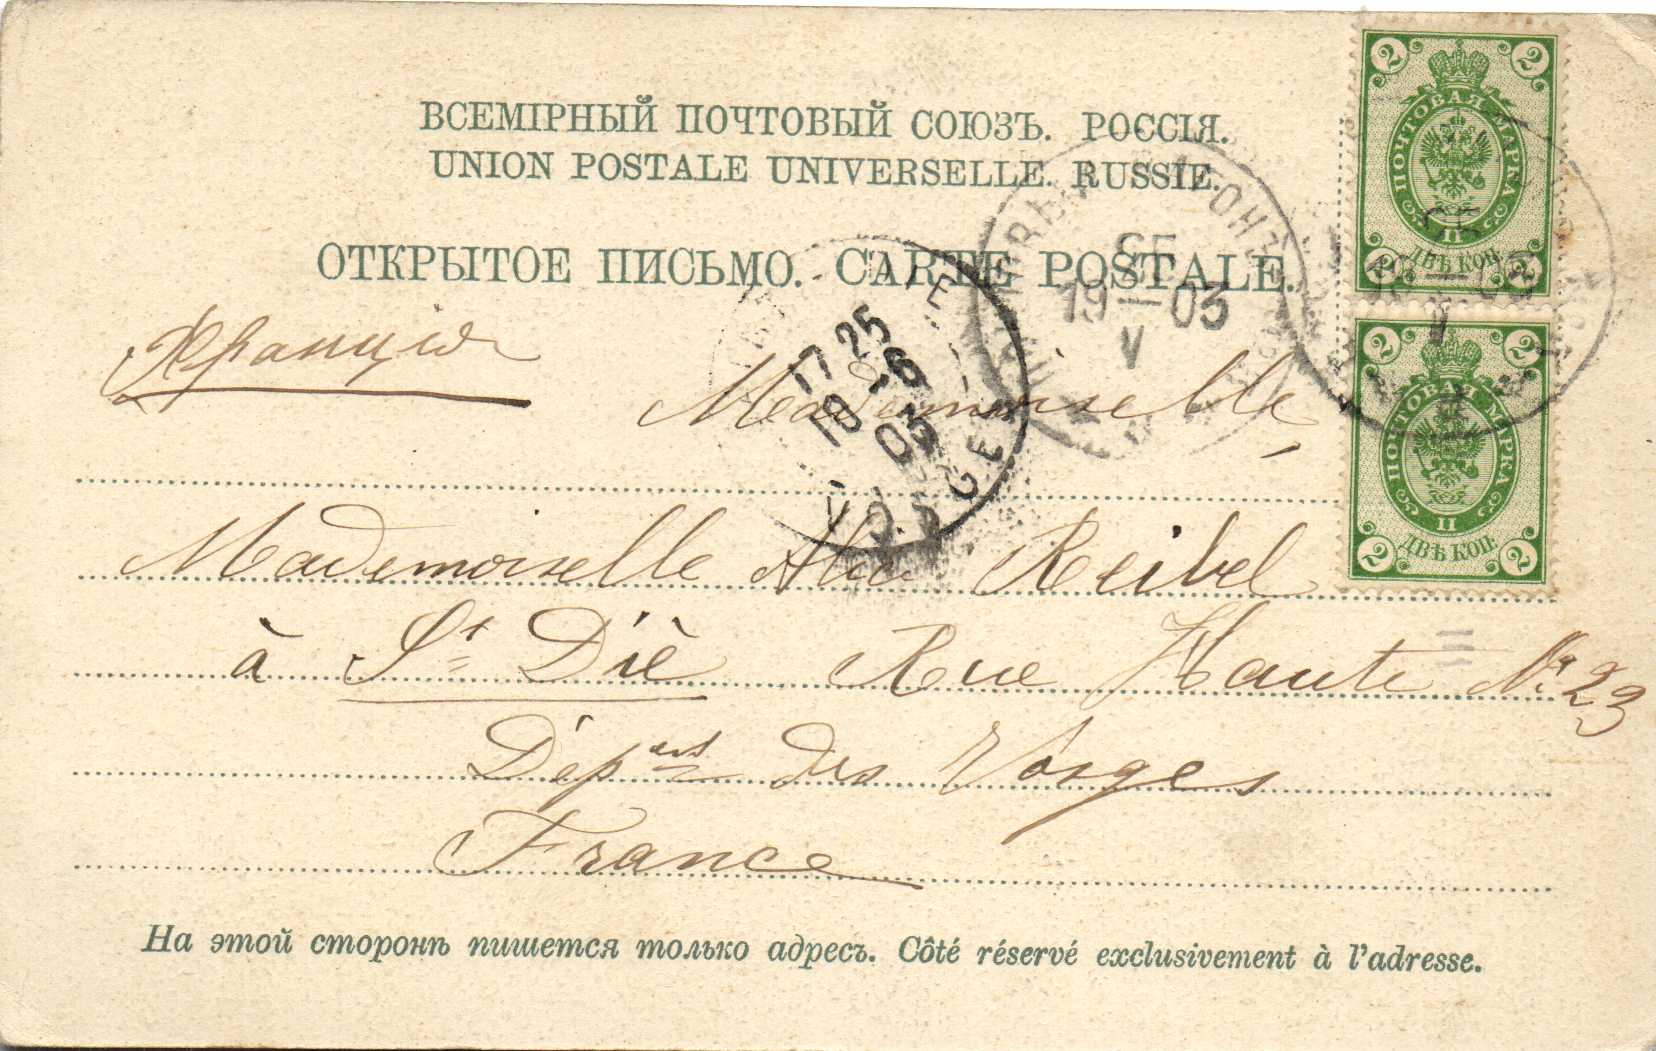 ВСЕМІРНЫЙ ПОЧТОВЫЙ СОЮЗЪ. РОССІЯ.
UNION POSTALE UNIVERSELLE. RUSSIE.
ОТКРЫТОЕ ПИСЬМО. CARTE POSTALE.
2 2
ПОЧТОВАЯ МАРКА
II
ДВѢ КОП.
2 2
2 2
ПОЧТОВАЯ МАРКА
II
ДВѢ КОП.
2 2
25
19–03
V
17 25
18 -6
03
VOSGES
Франція
Mademoiselle,
Mademoiselle Alice Reibel
à St Dié Rue Haute No 23
Dépnt des Vosges
France
На этой сторонѣ пишется только адресъ. Côté réservé exclusivement à l'adresse.